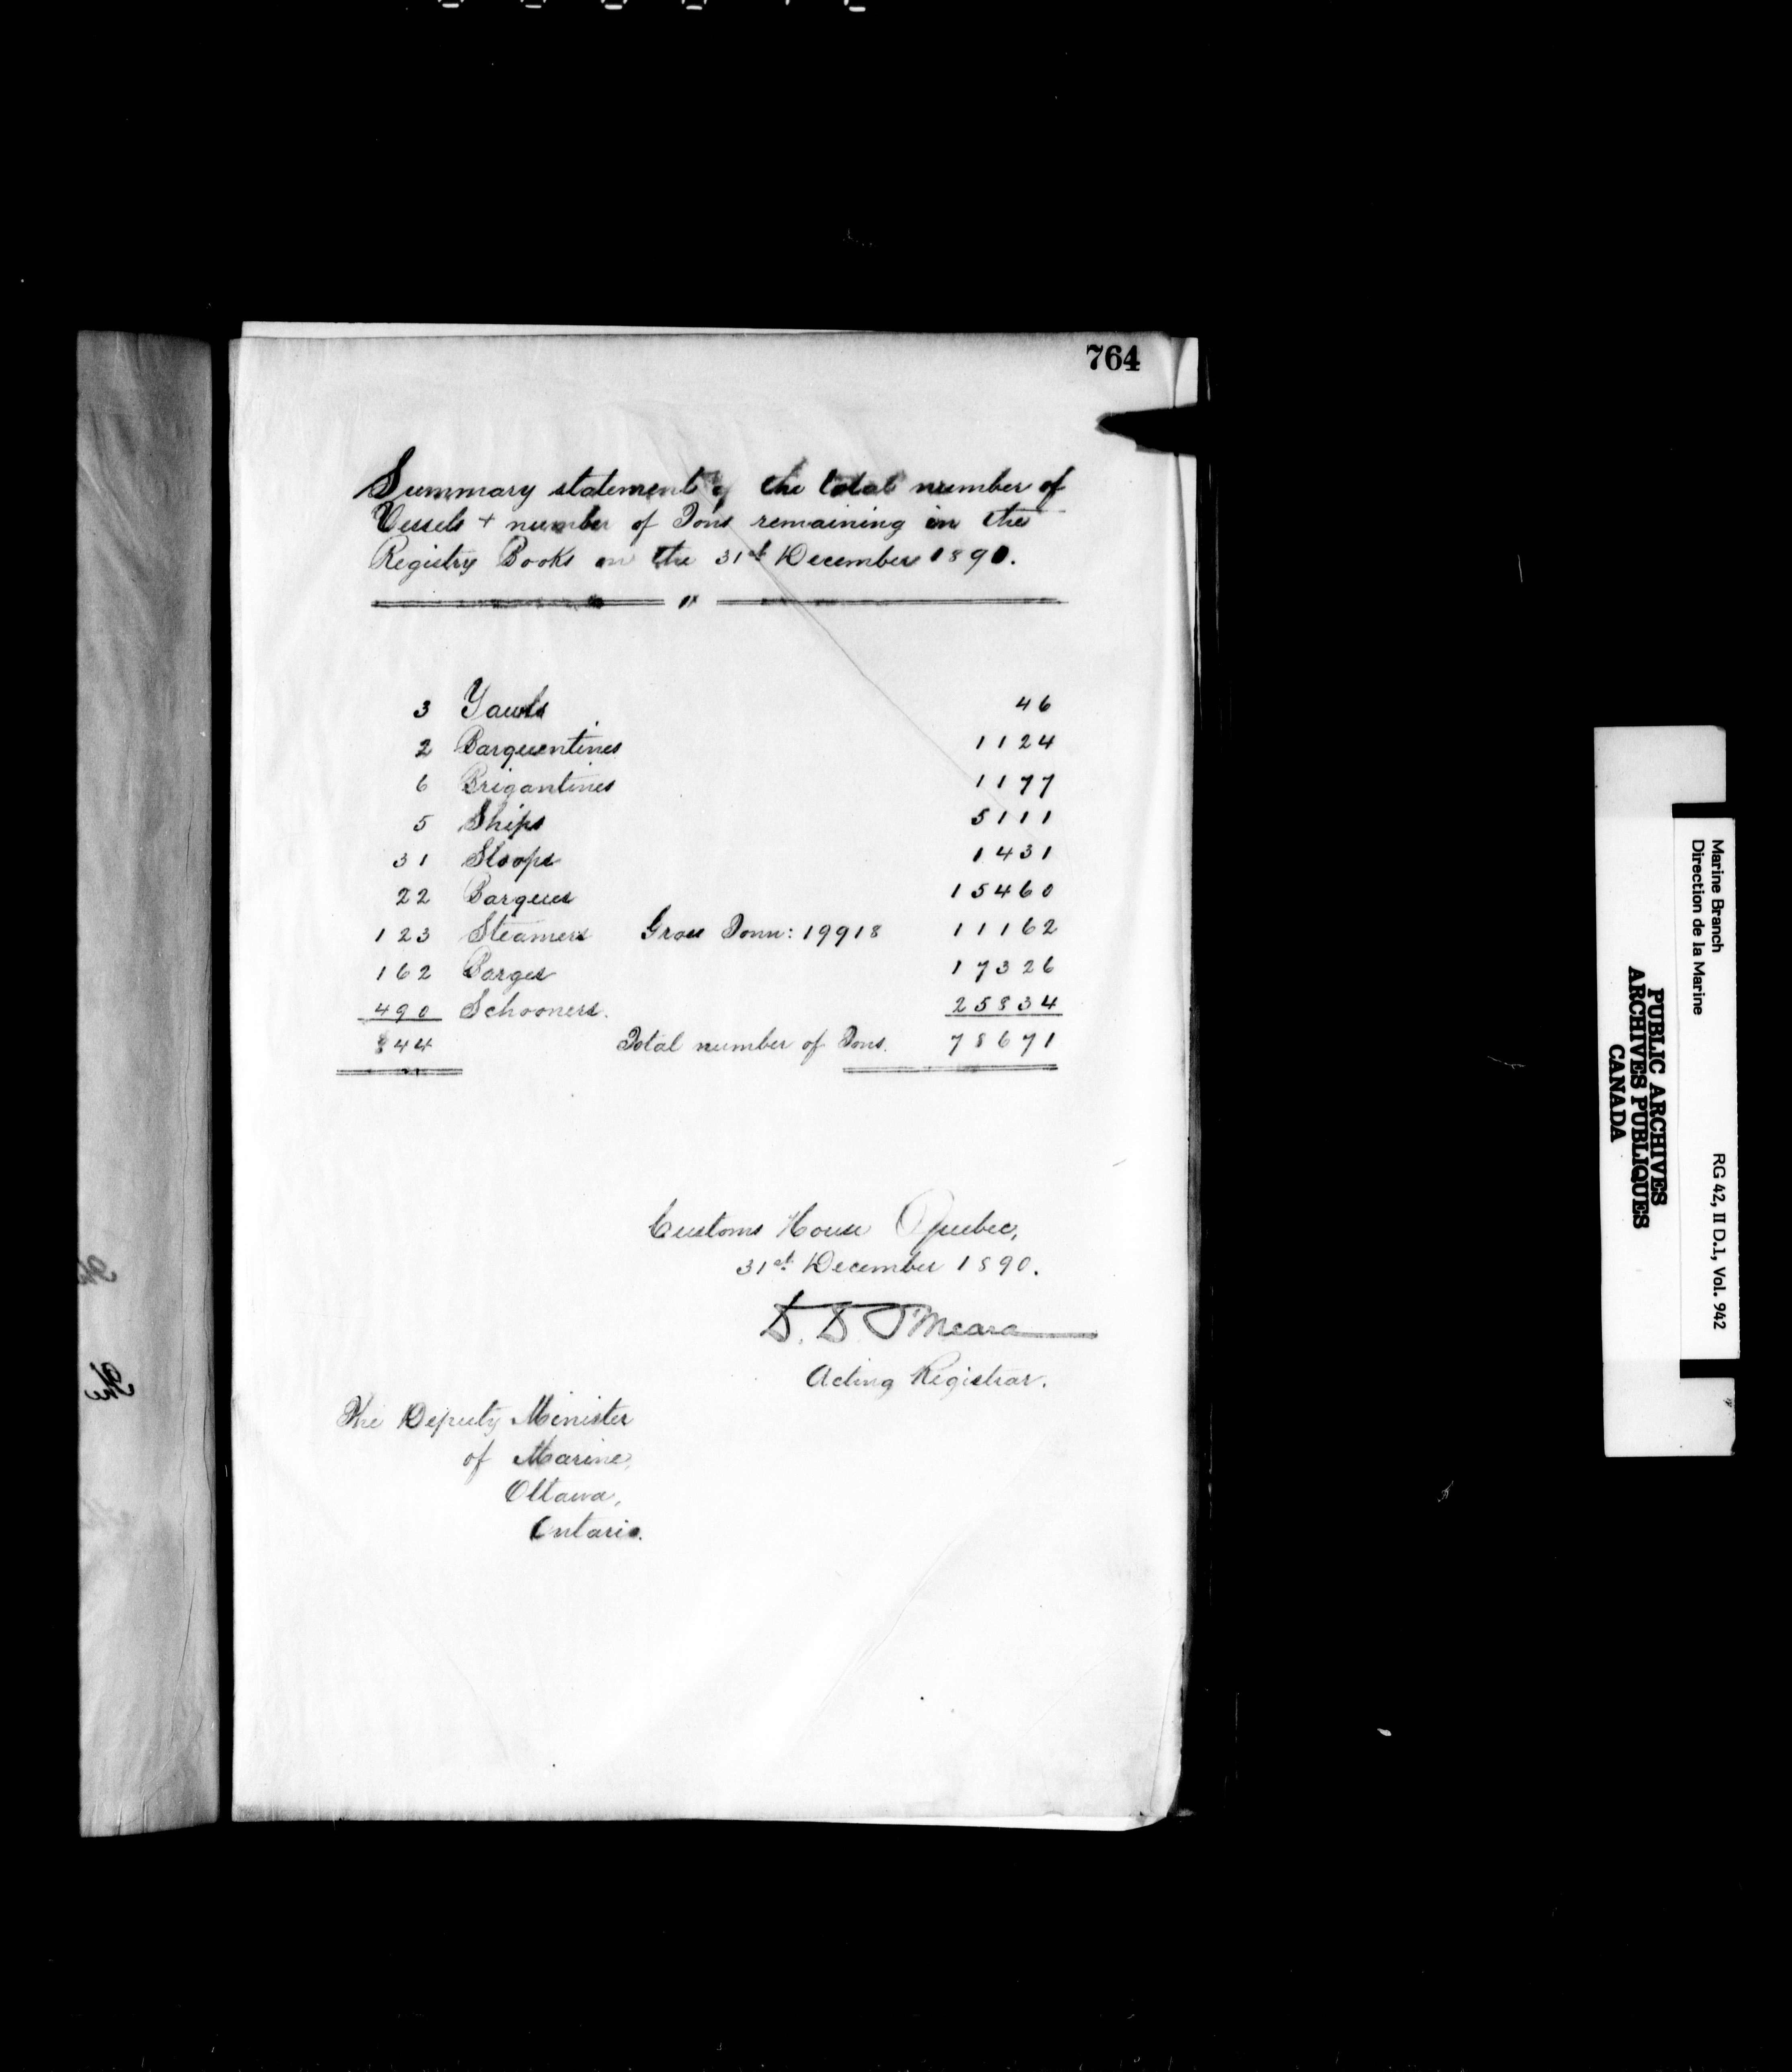 764
Summary statement of the total number of
Vessels + number of Tons remaining in the
Registry Books on the 31st December 1890.
3 Yawls 46
2 Barquentines 1124
6 Brigantines 1177
5 Ships 5111
31 Sloops 1431
22 Barques 15460
123 Steamers Gross Tonn: 19918 11162
162 Barges 17326
490 Schooners. 25834
844 Total number of Tons. 78671
Customs House Quebec,
31st December 1890.
D. D. O'Meara
Acting Registrar.
The Deputy Minister
of Marine,
Ottawa,
Ontario.
The
Marine Branch
Direction de la Marine
RG 42, II D.1, Vol. 942
PUBLIC ARCHIVES
ARCHIVES PUBLIQUES
CANADA